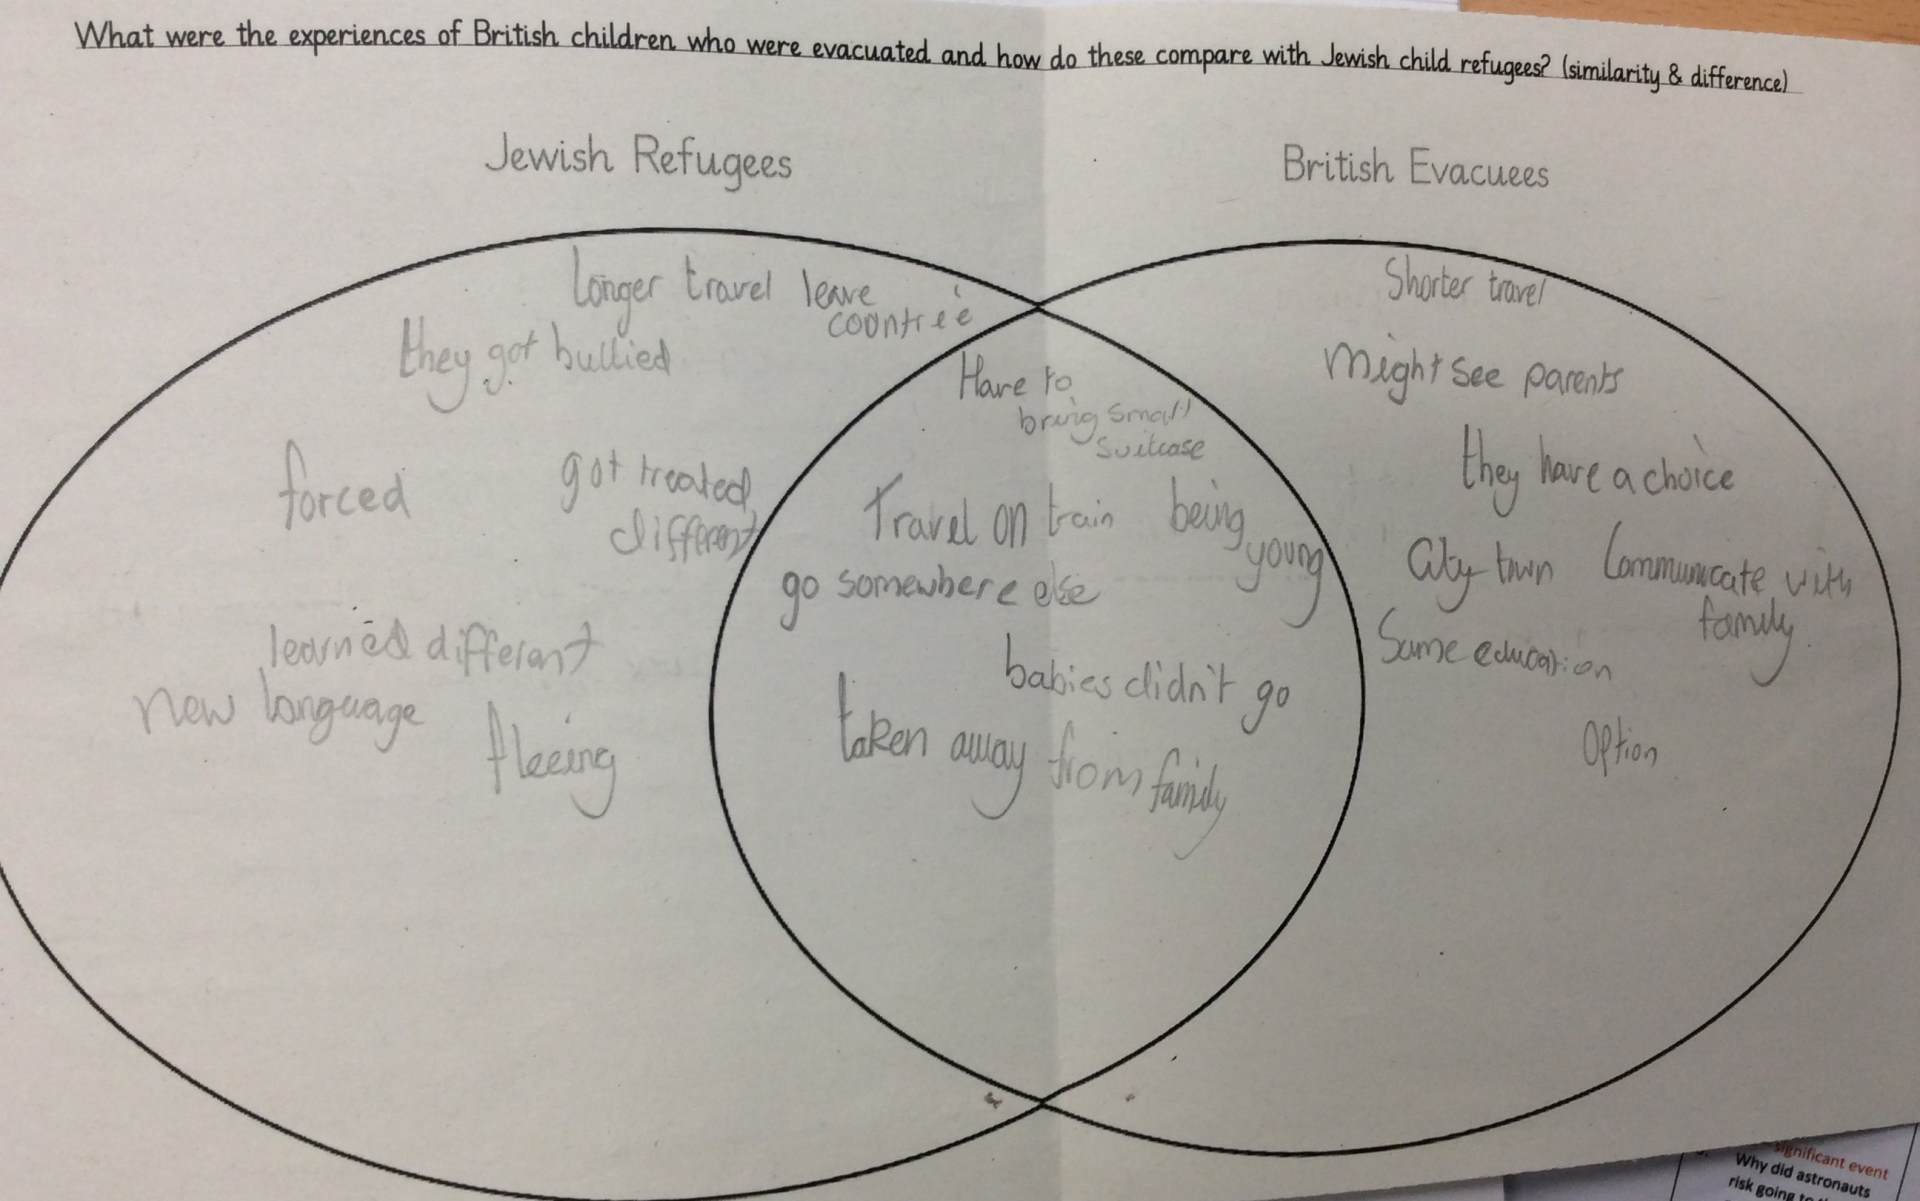 What were the experiences of British children who were evacuated and how do these compare with Jewish child refugees? (similarity & difference)
Jewish Refugees
British Evacuees
Longer travel
leave
countrie
they got bullied
forced
got treated
different
learned differant
new language
fleeing
Have to
bring small
suitcase
Travel on train
being
young
go somewhere else
babies didn't go
taken away from family
Shorter travel
Might see parents
they have a choice
City town
Communicate with
family
Same education
Option
significant event
Why did astronauts
risk going